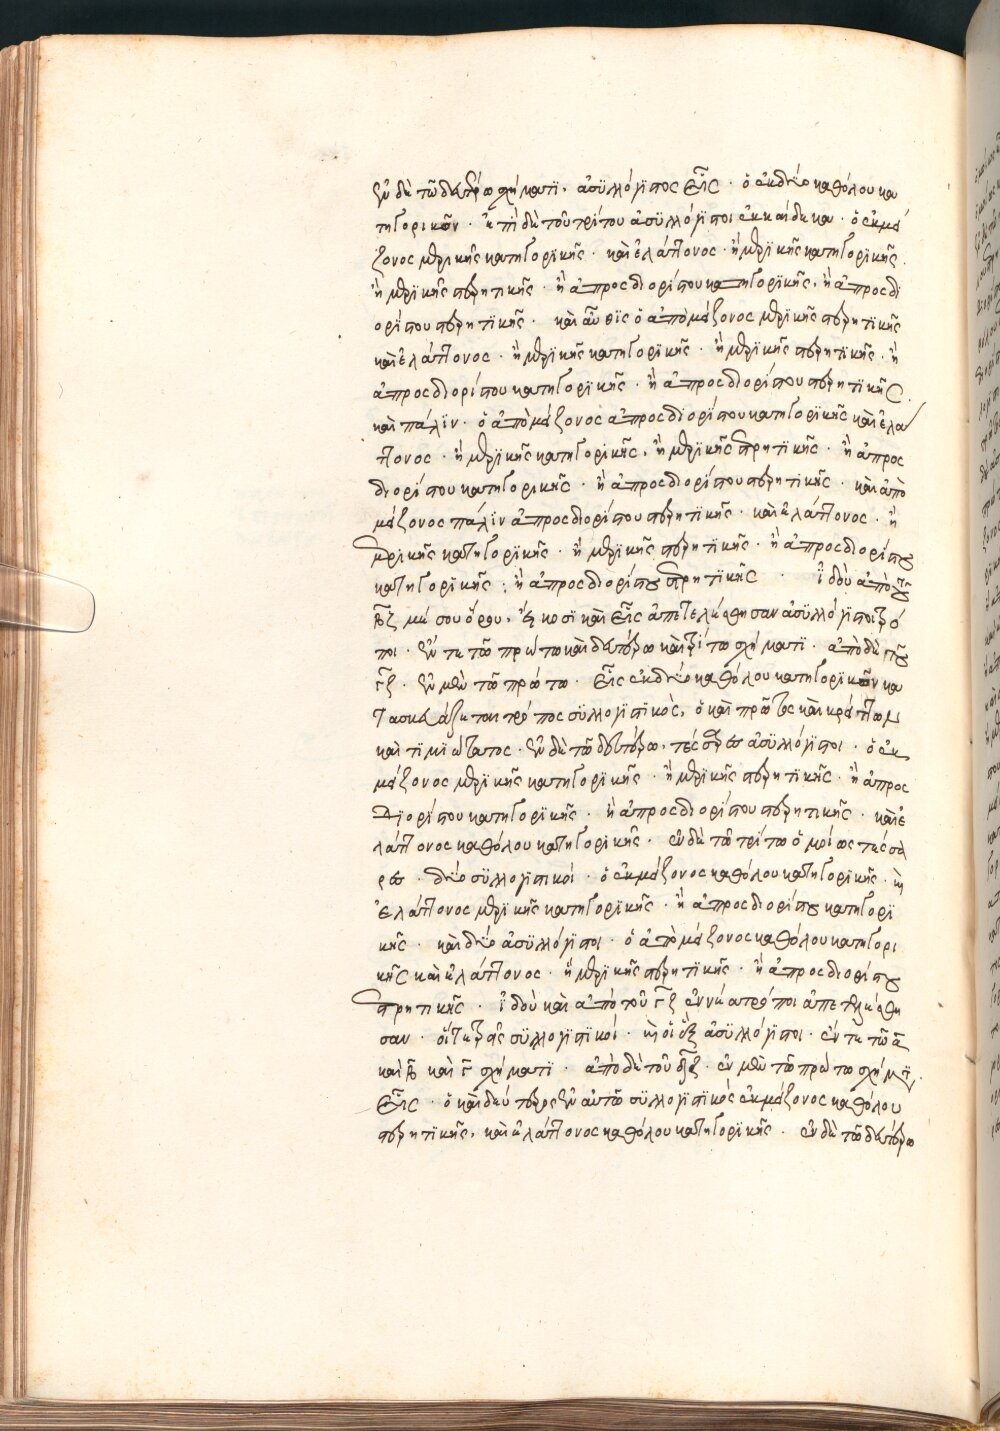 ἐν δὲ τῶ δευτέρω σχήματι, ἀσυλλόγιστος εἷς · ὁ ἐκ δύο καθόλου κα
τηγορικῶν · ἔτι δὲ τοῦ τρίτου ἀσυλλόγιστοι ἑκκαίδεκα · ὁ ἐκ μεί
ζονος μερικῆς κατηγορικῆς · καὶ ἐλάττονος · ἢ μερικῆς κατηγορικῆς ·
ἢ μερικῆς στερητικῆς · ἢ ἀπροσδιορίστου κατηγορικῆς, ἢ ἀπροσδι
ορίστου στερητικῆς · καὶ αὖθις ὁ ἀπὸ μείζονος μερικῆς στερητικῆς
καὶ ἐλάττονος · ἢ μερικῆς κατηγορικῆς · ἢ μερικῆς στερητικῆς · ἢ
ἀπροσδιορίστου κατηγορικῆς · ἢ ἀπροσδιορίστου στερητικῆς ·
καὶ πάλιν · ὁ ἀπὸ μείζονος ἀπροσδιορίστου κατηγορικῆς καὶ ἐλά
ττονος · ἢ μερικῆς κατηγορικῆς, ἢ μερικῆς στερητικῆς · ἢ ἀπροσ
διορίστου κατηγορικῆς · ἢ ἀπροσδιορίστου στερητικῆς · καὶ ἀπὸ
μείζονος πάλιν ἀπροσδιορίστου στερητικῆς · καὶ ἐλάττονος · ἢ
μερικῆς κατηγορικῆς · ἢ μερικῆς στερητικῆς · ἢ ἀπροσδιορίστου
κατηγορικῆς · ἢ ἀπροσδιορίστου στερητικῆς · ἰδοὺ ἀπὸ τοῦ
μέσου ὅρου, εἴκοσι καὶ εἷς ἀπετελέσθησαν ἀσυλλόγιστοι τρό
ποι · ἔν τε τῶ πρώτω καὶ δευτέρω καὶ τρίτω σχήματι · ἀπὸ δὲ τοῦ
ἐν μὲν τῶ πρώτω · εἷς ἐκ δύο καθόλου κατηγορικῶν κα
τασκευάζεται τρόπος συλλογιστικὸς, ὁ καὶ πρῶτος καὶ κρείττων
καὶ τιμιώτατος · ἐν δὲ τῶ δευτέρω, τέσσαρες ἀσυλλόγιστοι · ὁ ἐκ
μείζονος μερικῆς κατηγορικῆς · ἢ μερικῆς στερητικῆς · ἢ ἀπροσ
διορίστου κατηγορικῆς · ἢ ἀπροσδιορίστου στερητικῆς · καὶ ἐ
λάττονος καθόλου κατηγορικῆς · ἐν δὲ τῶ τρίτω ὁμοίως τέσσα
ρες · δύο συλλογιστικοί · ὁ ἐκ μείζονος καθόλου κατηγορικῆς · καὶ
ἐλάττονος μερικῆς κατηγορικῆς · ἢ ἀπροσδιορίστου κατηγορι
κῆς · καὶ δύο ἀσυλλόγιστοι · ὁ ἀπὸ μείζονος καθόλου κατηγορι
κῆς καὶ ἐλάττονος · ἢ μερικῆς στερητικῆς · ἢ ἀπροσδιορίστου
στερητικῆς · ἰδοὺ καὶ ἀπὸ τοῦ ἐννέα τρόποι ἀπετελέσθη
σαν · οἵ τε τρεῖς συλλογιστικοί · καὶ οἱ ἓξ ἀσυλλόγιστοι · ἔν τε τῶ α
καὶ β καὶ γ σχήματι · ἀπὸ δὲ τοῦ ἐν μὲν τῶ πρώτω σχήματι ·
εἷς · ὁ καὶ δεύτερος ἐν αὐτῶ συλλογιστικός ἐκ μείζονος καθόλου
στερητικῆς, καὶ ἐλάττονος καθόλου κατηγορικῆς · ἐν δὲ τῶ δευτέρω